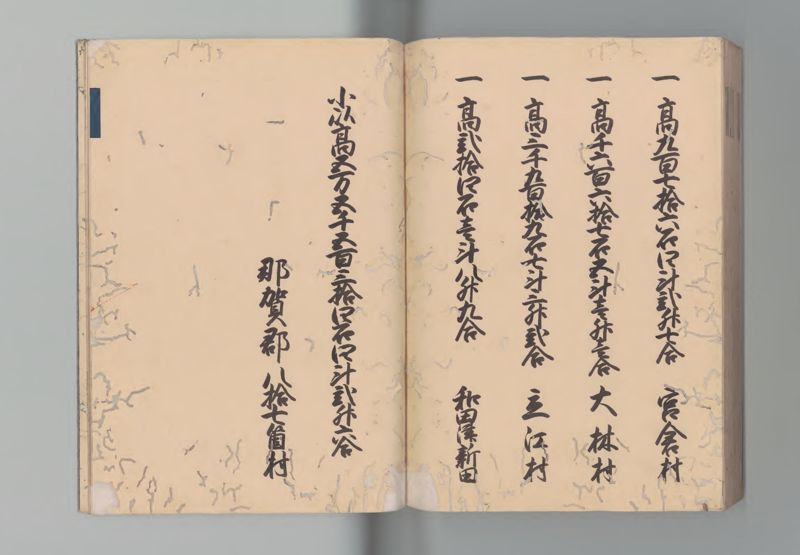 一 高九百七拾六石四斗弐升七合 宮倉村
一 高千六百六拾七石五斗壱升六合 大林村
一 高三千九百拾九石七斗三升弐合 立江村
一 高弐拾四石壱斗八升九合 和田津新田
小以高五万五千五百三拾四石四斗弐升六合
那賀郡 八拾七箇村